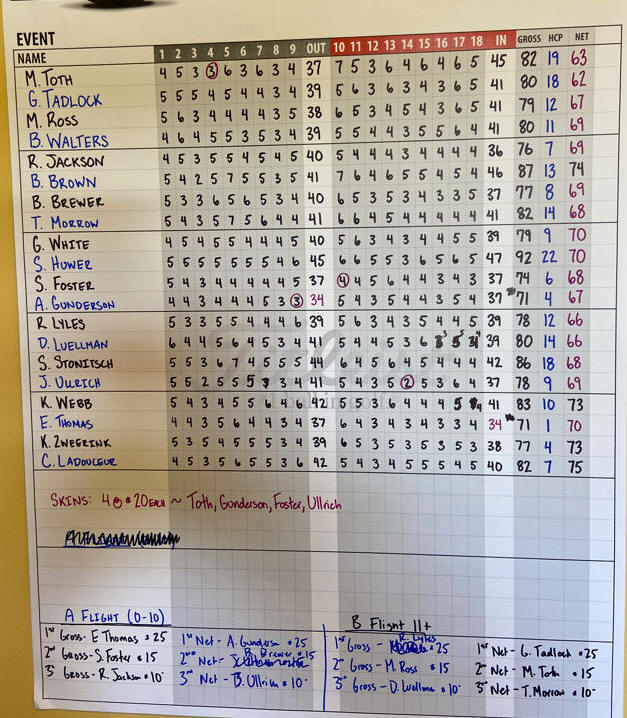 EVENT
NAME 1 2 3 4 5 6 7 8 9 OUT 10 11 12 13 14 15 16 17 18 IN GROSS HCP NET
M. TOTH 4 5 3 3 6 3 6 3 4 37 7 5 3 6 4 6 4 6 5 45 82 19 63
G. TADLOCK 5 5 5 4 5 4 4 3 4 39 5 6 3 6 3 4 3 6 5 41 80 18 62
M. ROSS 5 6 3 4 4 4 4 3 5 38 6 5 3 4 5 4 3 6 5 41 79 12 67
B. WALTERS 4 6 4 5 5 3 5 3 4 39 5 5 4 4 3 5 5 6 4 41 80 11 69
R. JACKSON 4 5 3 5 5 4 5 4 5 40 5 4 4 4 3 4 4 4 4 36 76 7 69
B. BROWN 5 4 2 5 7 5 5 3 5 41 7 6 4 6 5 5 4 5 4 46 87 13 74
B. BREWER 5 3 3 6 5 6 5 3 4 40 6 5 3 5 3 4 3 3 5 37 77 8 69
T. MORROW 5 4 3 5 7 5 6 4 4 41 6 6 4 5 4 4 4 4 4 41 82 14 68
G. WHITE 4 5 4 5 5 4 4 4 5 40 5 6 3 4 3 4 4 5 5 39 79 9 70
S. HOWER 5 5 5 5 5 5 5 4 6 45 6 6 5 5 3 6 5 6 5 47 92 22 70
S. FOSTER 5 4 3 4 4 4 4 4 5 37 4 4 5 6 4 4 3 4 3 37 74 6 68
A. GUNDERSON 4 4 3 4 4 4 5 3 3 34 5 4 3 5 4 4 3 5 4 37 71 4 67
R LYLES 5 3 3 5 5 4 4 4 6 39 5 6 3 4 3 5 4 4 5 39 78 12 66
D. LUELLMAN 6 4 4 5 6 4 5 3 4 41 5 4 4 5 3 6 3 5 4 39 80 14 66
S. STONITSCH 5 5 3 6 7 4 5 5 5 44 6 4 5 6 4 5 4 4 4 42 86 18 68
J. ULLRICH 5 5 2 5 5 5 7 3 4 41 5 4 3 5 2 5 3 6 4 37 78 9 69
K. WEBB 5 4 3 4 5 5 6 4 6 42 5 5 3 6 4 4 5 4 41 83 10 73
E. THOMAS 4 4 3 5 6 4 4 3 4 37 6 4 3 4 3 4 3 3 4 34 71 1 70
K. ZWEERINK 5 3 5 4 5 5 5 3 4 39 6 5 3 5 3 5 3 5 3 38 77 4 73
C. LADOUCEUR 4 5 3 5 6 5 5 3 6 42 5 4 3 4 5 5 5 4 5 40 82 7 75
SKINS: 4 @ $20 EACH ~ Toth, Gunderson, Foster, Ullrich
A FLIGHT (0-10) B Flight 11+
1st Gross - E Thomas $25 1st Net - A. Gunderson $25 1st Gross - R. Lyles $25 1st Net - G. Tadlock $25
2nd Gross - S. Foster $15 2nd Net - B. Brewer $15 2nd Gross - M. Ross $15 2nd Net - M. Toth $15
3rd Gross - R. Jackson $10 3rd Net - B. Ullrich $10 3rd Gross - D. Luellman $10 3rd Net - T. Morrow $10